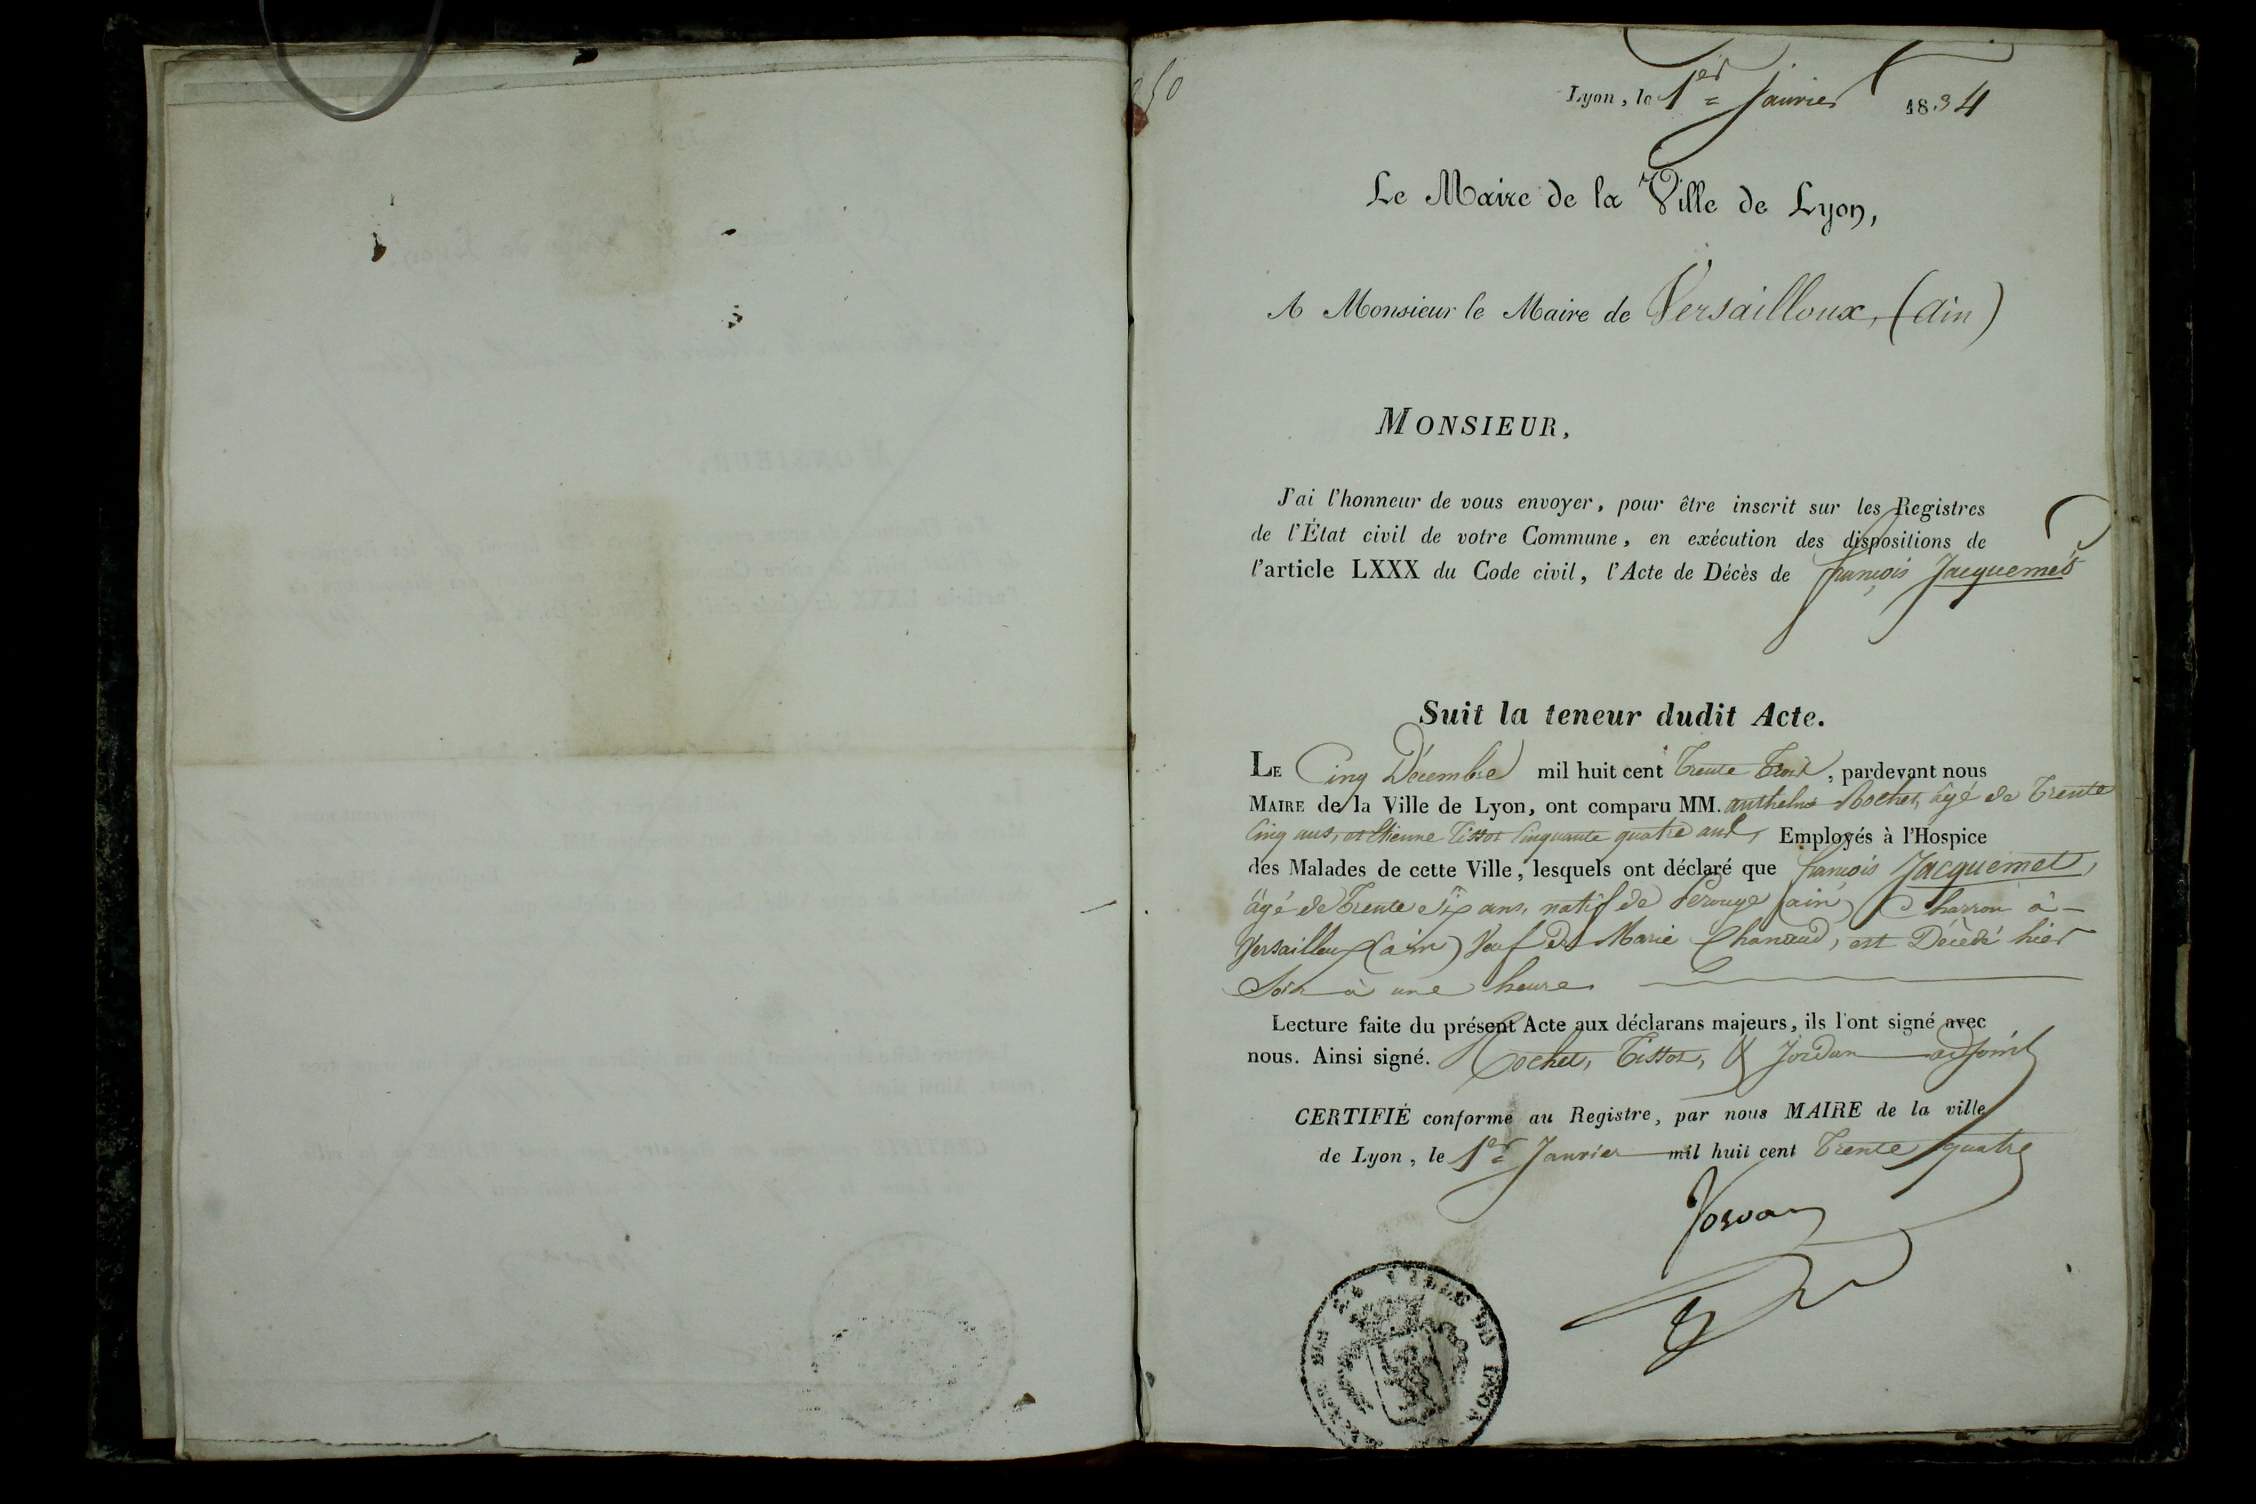 Lyon, le 1er Janvier 1834
Le Maire de la Ville de Lyon,
A Monsieur le Maire de Versailloux, (ain)
MONSIEUR,
J'ai l'honneur de vous envoyer, pour être inscrit sur les Registres
de l'État civil de votre Commune, en exécution des dispositions de
l'article LXXX du Code civil, l'Acte de Décès de françois Jacquemet
Suit la teneur dudit Acte.
LE Cinq Décembre mil huit cent Trente Trois, pardevant nous
MAIRE de la Ville de Lyon, ont comparu MM. anthelme Rochet, âgé de Trente
Cinq ans, et Etienne Tissot Cinquante quatre ans, Employés à l'Hospice
des Malades de cette Ville, lesquels ont déclaré que françois Jacquemet,
âgé de Trente Six ans, natif de Perouge (ain) Charron à
Versailleux (ain) Veuf de Marie Chanaud, est Décédé hier
Soir à une heure.
Lecture faite du présent Acte aux déclarans majeurs, ils l'ont signé avec
nous. Ainsi signé. Rochet, Tissot, & Jordan adjoint
CERTIFIÉ conforme au Registre, par nous MAIRE de la ville
de Lyon, le 1er Janvier mil huit cent Trente quatre
Jordan
VILLE DE LYON